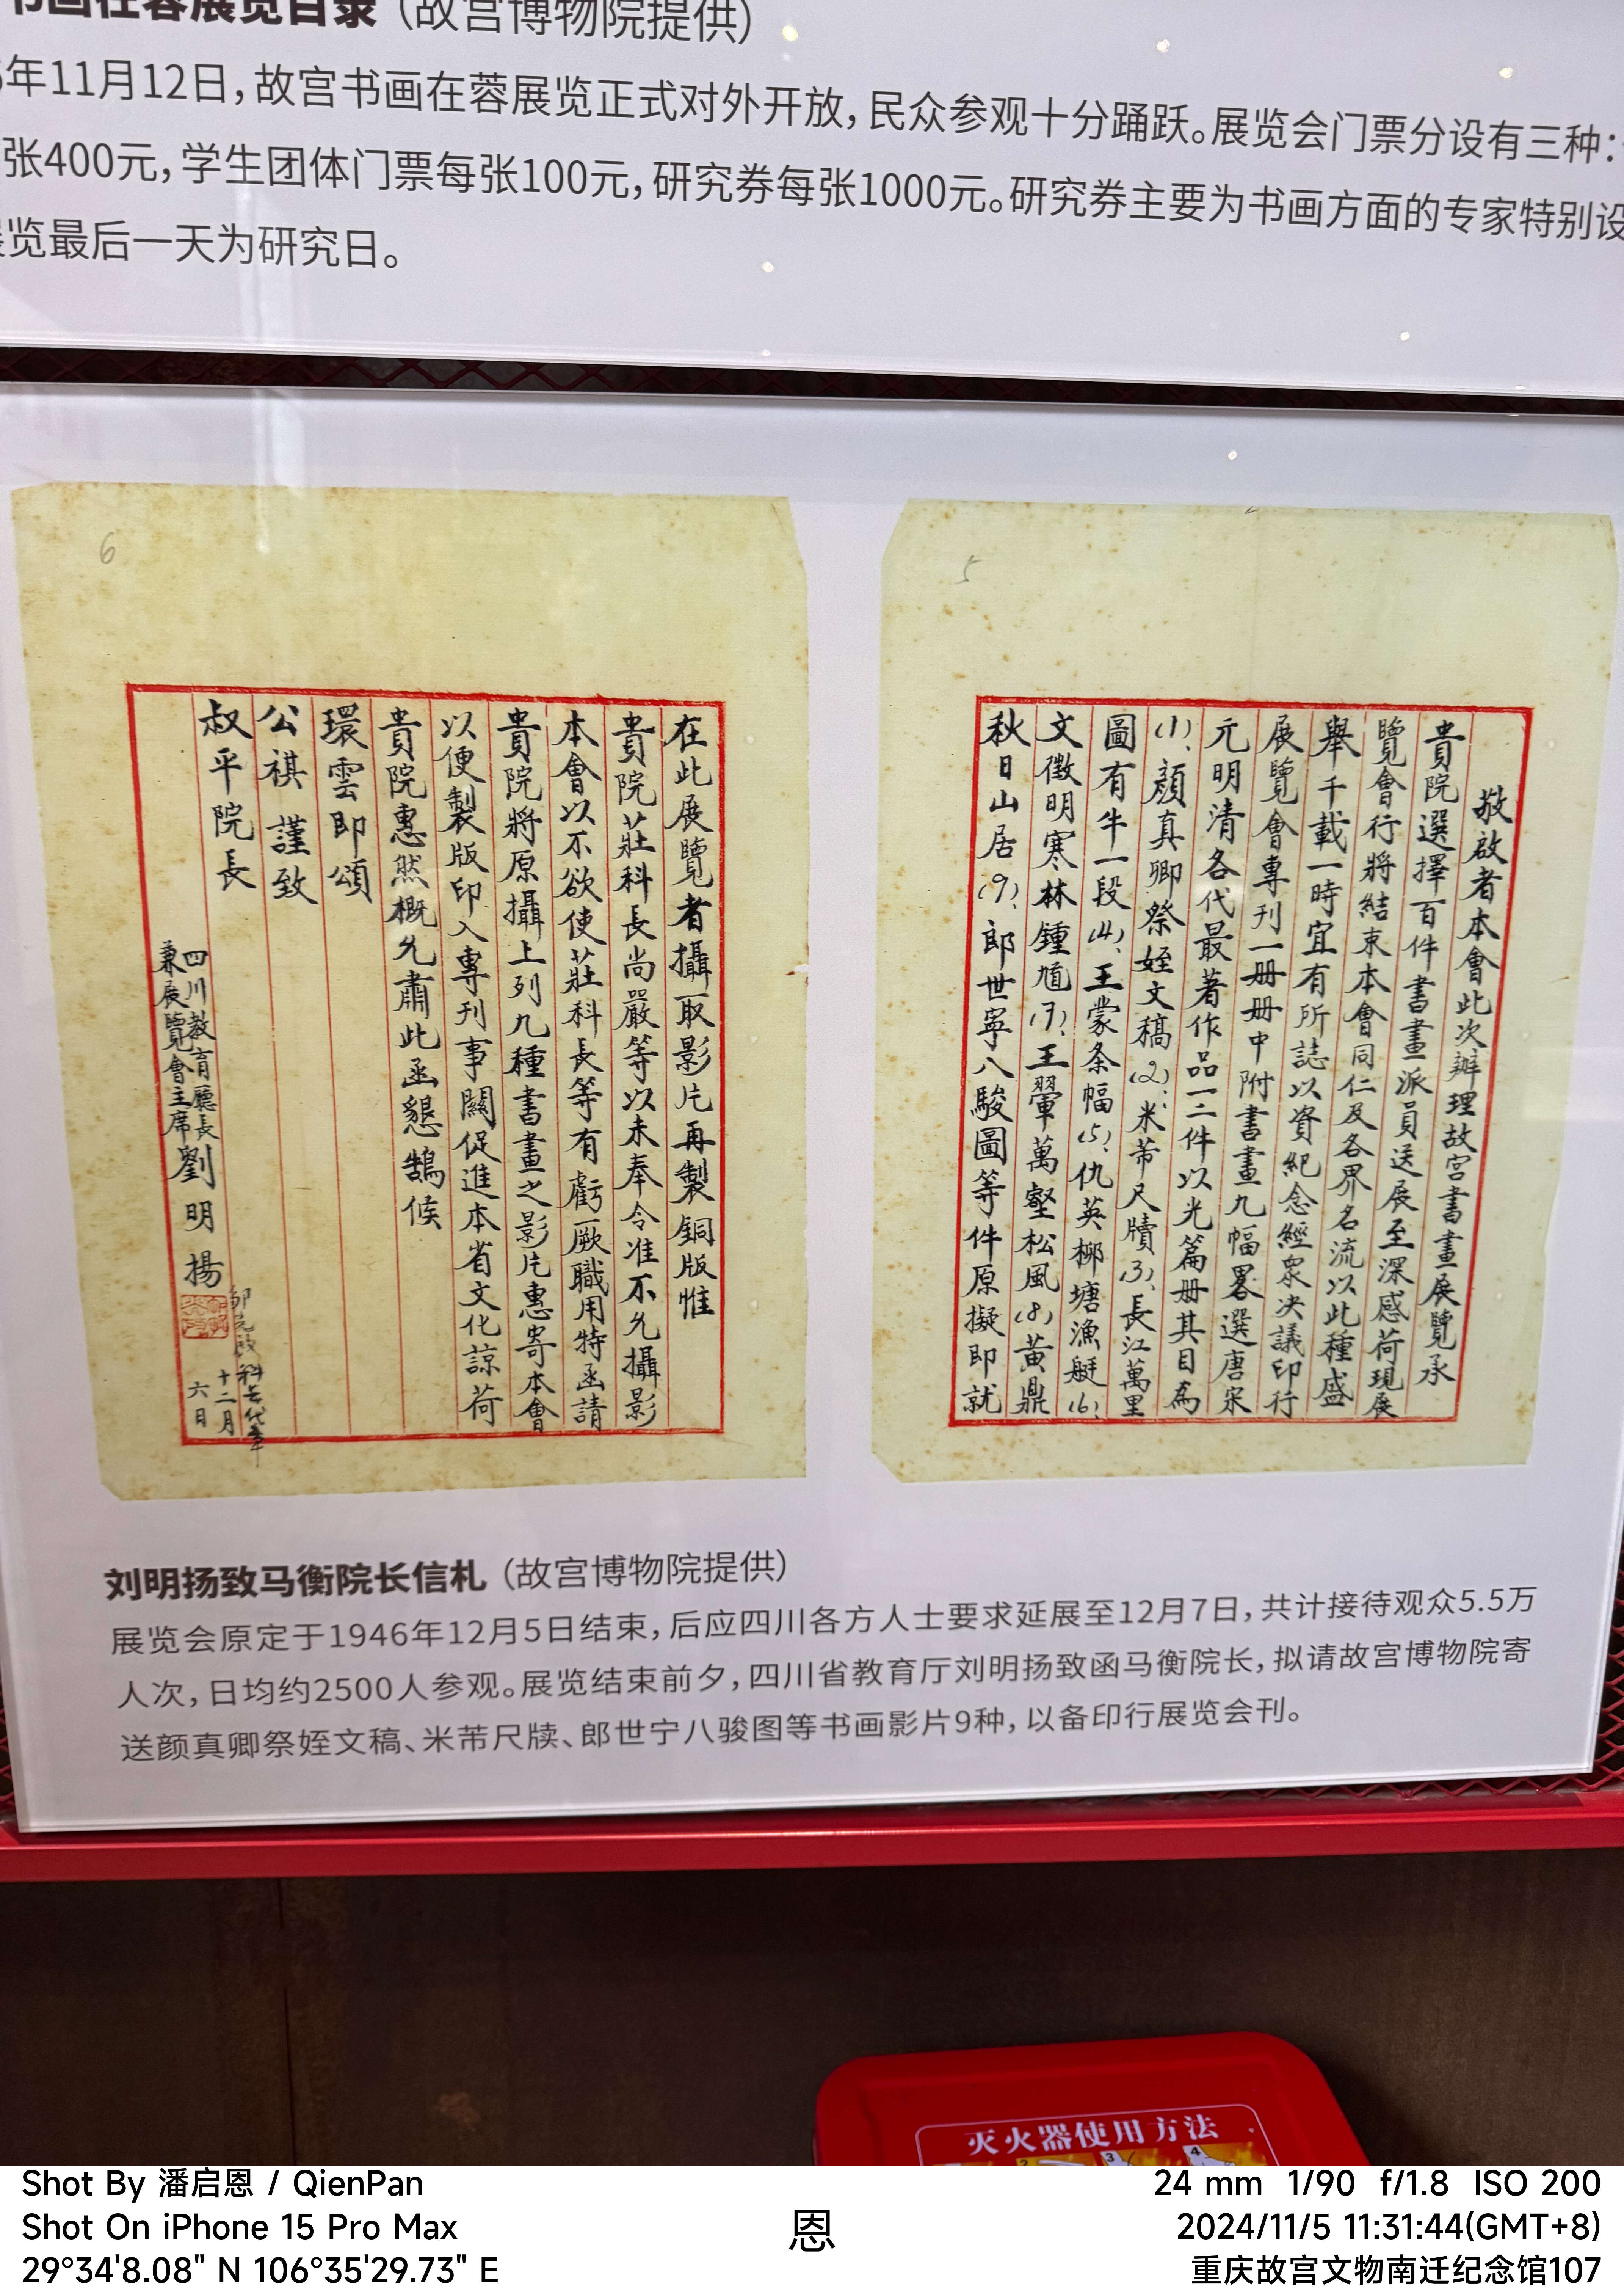 书画在蓉展览目录（故宫博物院提供）
年11月12日，故宫书画在蓉展览正式对外开放，民众参观十分踊跃。展览会门票分设有三种：
张400元，学生团体门票每张100元，研究券每张1000元。研究券主要为书画方面的专家特别设
览最后一天为研究日。
5
敬啟者本會此次辦理故宮書畫展覽承
貴院選擇百件書畫派員送展至深感荷現展
覽會行將結束本會同仁及各界名流以此種盛
舉千載一時宜有所誌以資紀念經衆決議印行
展覽會專刊一册册中附書畫九幅畧選唐宋
元明清各代最著作品一二件以光篇册其目為
(1)、顏真卿祭姪文稿(2)、米芾尺牘(3)、長江萬里
圖有牛一段(4)、王蒙条幅(5)、仇英柳塘漁艇(6)、
文徵明寒林鍾馗(7)、王翬萬壑松風(8)、黃鼎
秋日山居(9)、郎世寧八駿圖等件原擬即就
6
在此展覽者攝取影片再製銅版惟
貴院莊科長尚嚴等以未奉令准不允攝影
本會以不欲使莊科長等有虧厥職用特函請
貴院將原攝上列九種書畫之影片惠寄本會
以便製版印入專刊事關促進本省文化諒荷
貴院惠然概允肅此函懇鵠候
環雲即頌
公祺 謹致
叔平院長
四川教育廳長
兼展覽會主席 劉明揚
科長代章
十二月
六日
刘明扬致马衡院长信札（故宫博物院提供）
展览会原定于1946年12月5日结束，后应四川各方人士要求延展至12月7日，共计接待观众5.5万
人次，日均约2500人参观。展览结束前夕，四川省教育厅刘明扬致函马衡院长，拟请故宫博物院寄
送颜真卿祭姪文稿、米芾尺牍、郎世宁八骏图等书画影片9种，以备印行展览会刊。
灭火器使用方法
2
3
4
Shot By 潘启恩 / QienPan
Shot On iPhone 15 Pro Max
29°34'8.08" N 106°35'29.73" E
恩
24 mm 1/90 f/1.8 ISO 200
2024/11/5 11:31:44(GMT+8)
重庆故宫文物南迁纪念馆107